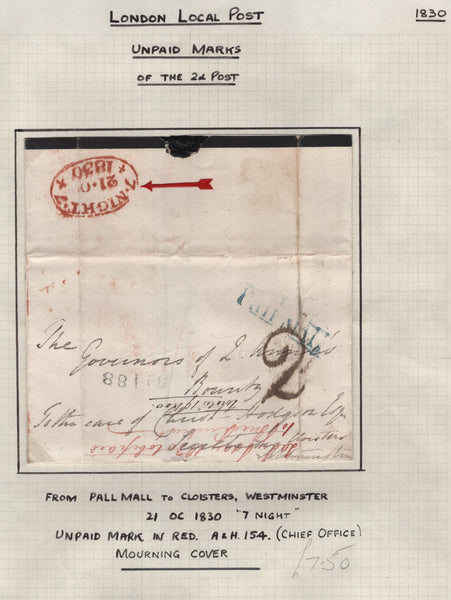 LONDON LOCAL POST
1830
UNPAID MARKS
OF THE 2d POST
7·NIGHT·7
21·OC
1830
Pall Mall
2
The
Governors of Q. Anne's
Bounty
8188
To the care of Christ Hodgson Esq
Cloisters
Westminster
FROM PALL MALL TO CLOISTERS, WESTMINSTER
21 OC 1830 "7 NIGHT"
UNPAID MARK IN RED. A&H. 154. (CHIEF OFFICE)
MOURNING COVER
£7.50